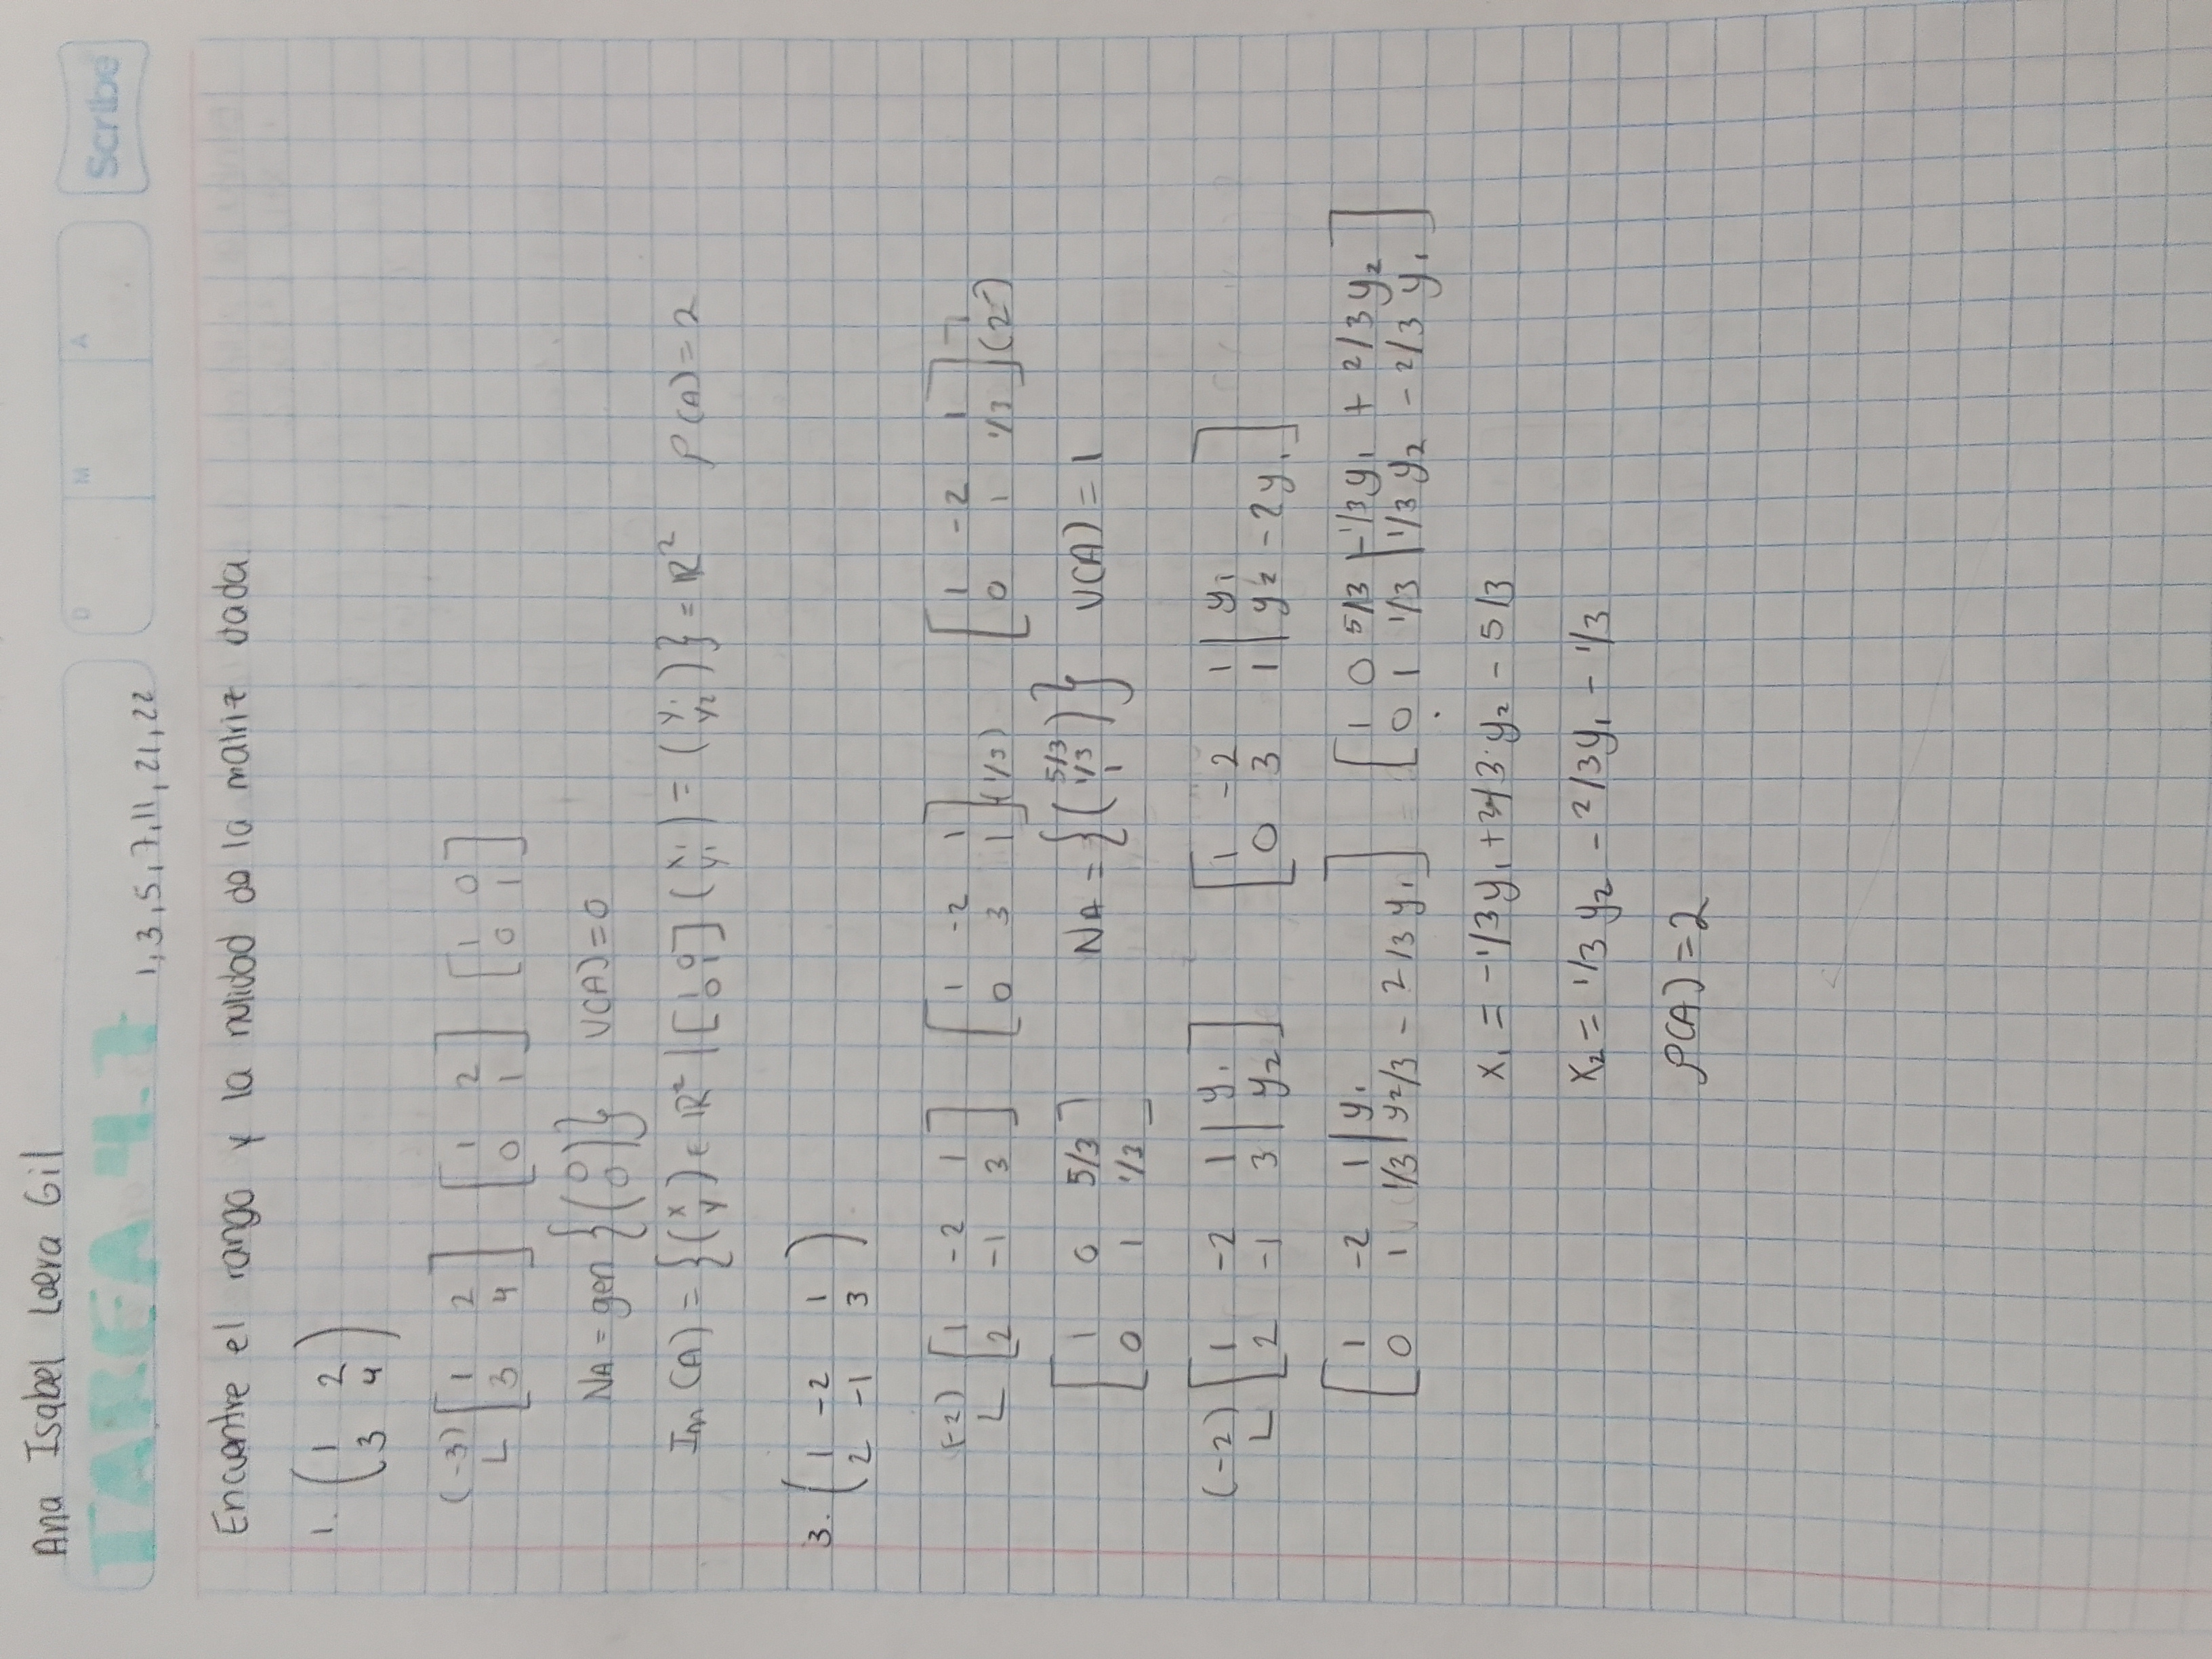 Ana Isabel Loera Gil
TAREA 4.7 1,3,5,7,11,21,22
D M A Scribe
Encuentre el rango y la nulidad de la matriz dada
1. ( 1 2
3 4 )
(-3) [ 1 2 ] [ 1 2 ] [ 1 0 ]
[ 3 4 ] [ 0 1 ] [ 0 1 ]
NA = gen { ( 0 0 ) } ν(A) = 0
Im (A) = { ( x y ) ∈ ℝ² | [ 1 0 0 1 ] ( x₁ y₁ ) = ( y₁ y₂ ) } = ℝ² ρ(A) = 2
3. ( 1 -2 1
2 -1 3 )
(-2) [ 1 -2 1 ] [ 1 -2 1 ] [ 1 -2 1 ]
[ 2 -1 3 ] [ 0 3 1 ] (1/3) [ 0 1 1/3 ] (2)
[ 1 0 5/3 ] NA = { ( 5/3 1/3 1 ) } ν(A) = 1
[ 0 1 1/3 ]
(-2) [ 1 -2 1 | y₁ ] [ 1 -2 1 | y₁ ]
[ 2 -1 3 | y₂ ] [ 0 3 1 | y₂ - 2y₁ ]
[ 1 -2 1 | y₁ ] [ 1 0 5/3 | -1/3y₁ + 2/3y₂ ]
[ 0 1 1/3 | y₂/3 - 2/3y₁ ] [ 0 1 1/3 | 1/3y₂ - 2/3y₁ ]
x₁ = -1/3y₁ + 2/3 y₂ - 5/3
x₂ = 1/3 y₂ - 2/3y₁ - 1/3
ρ(A) = 2